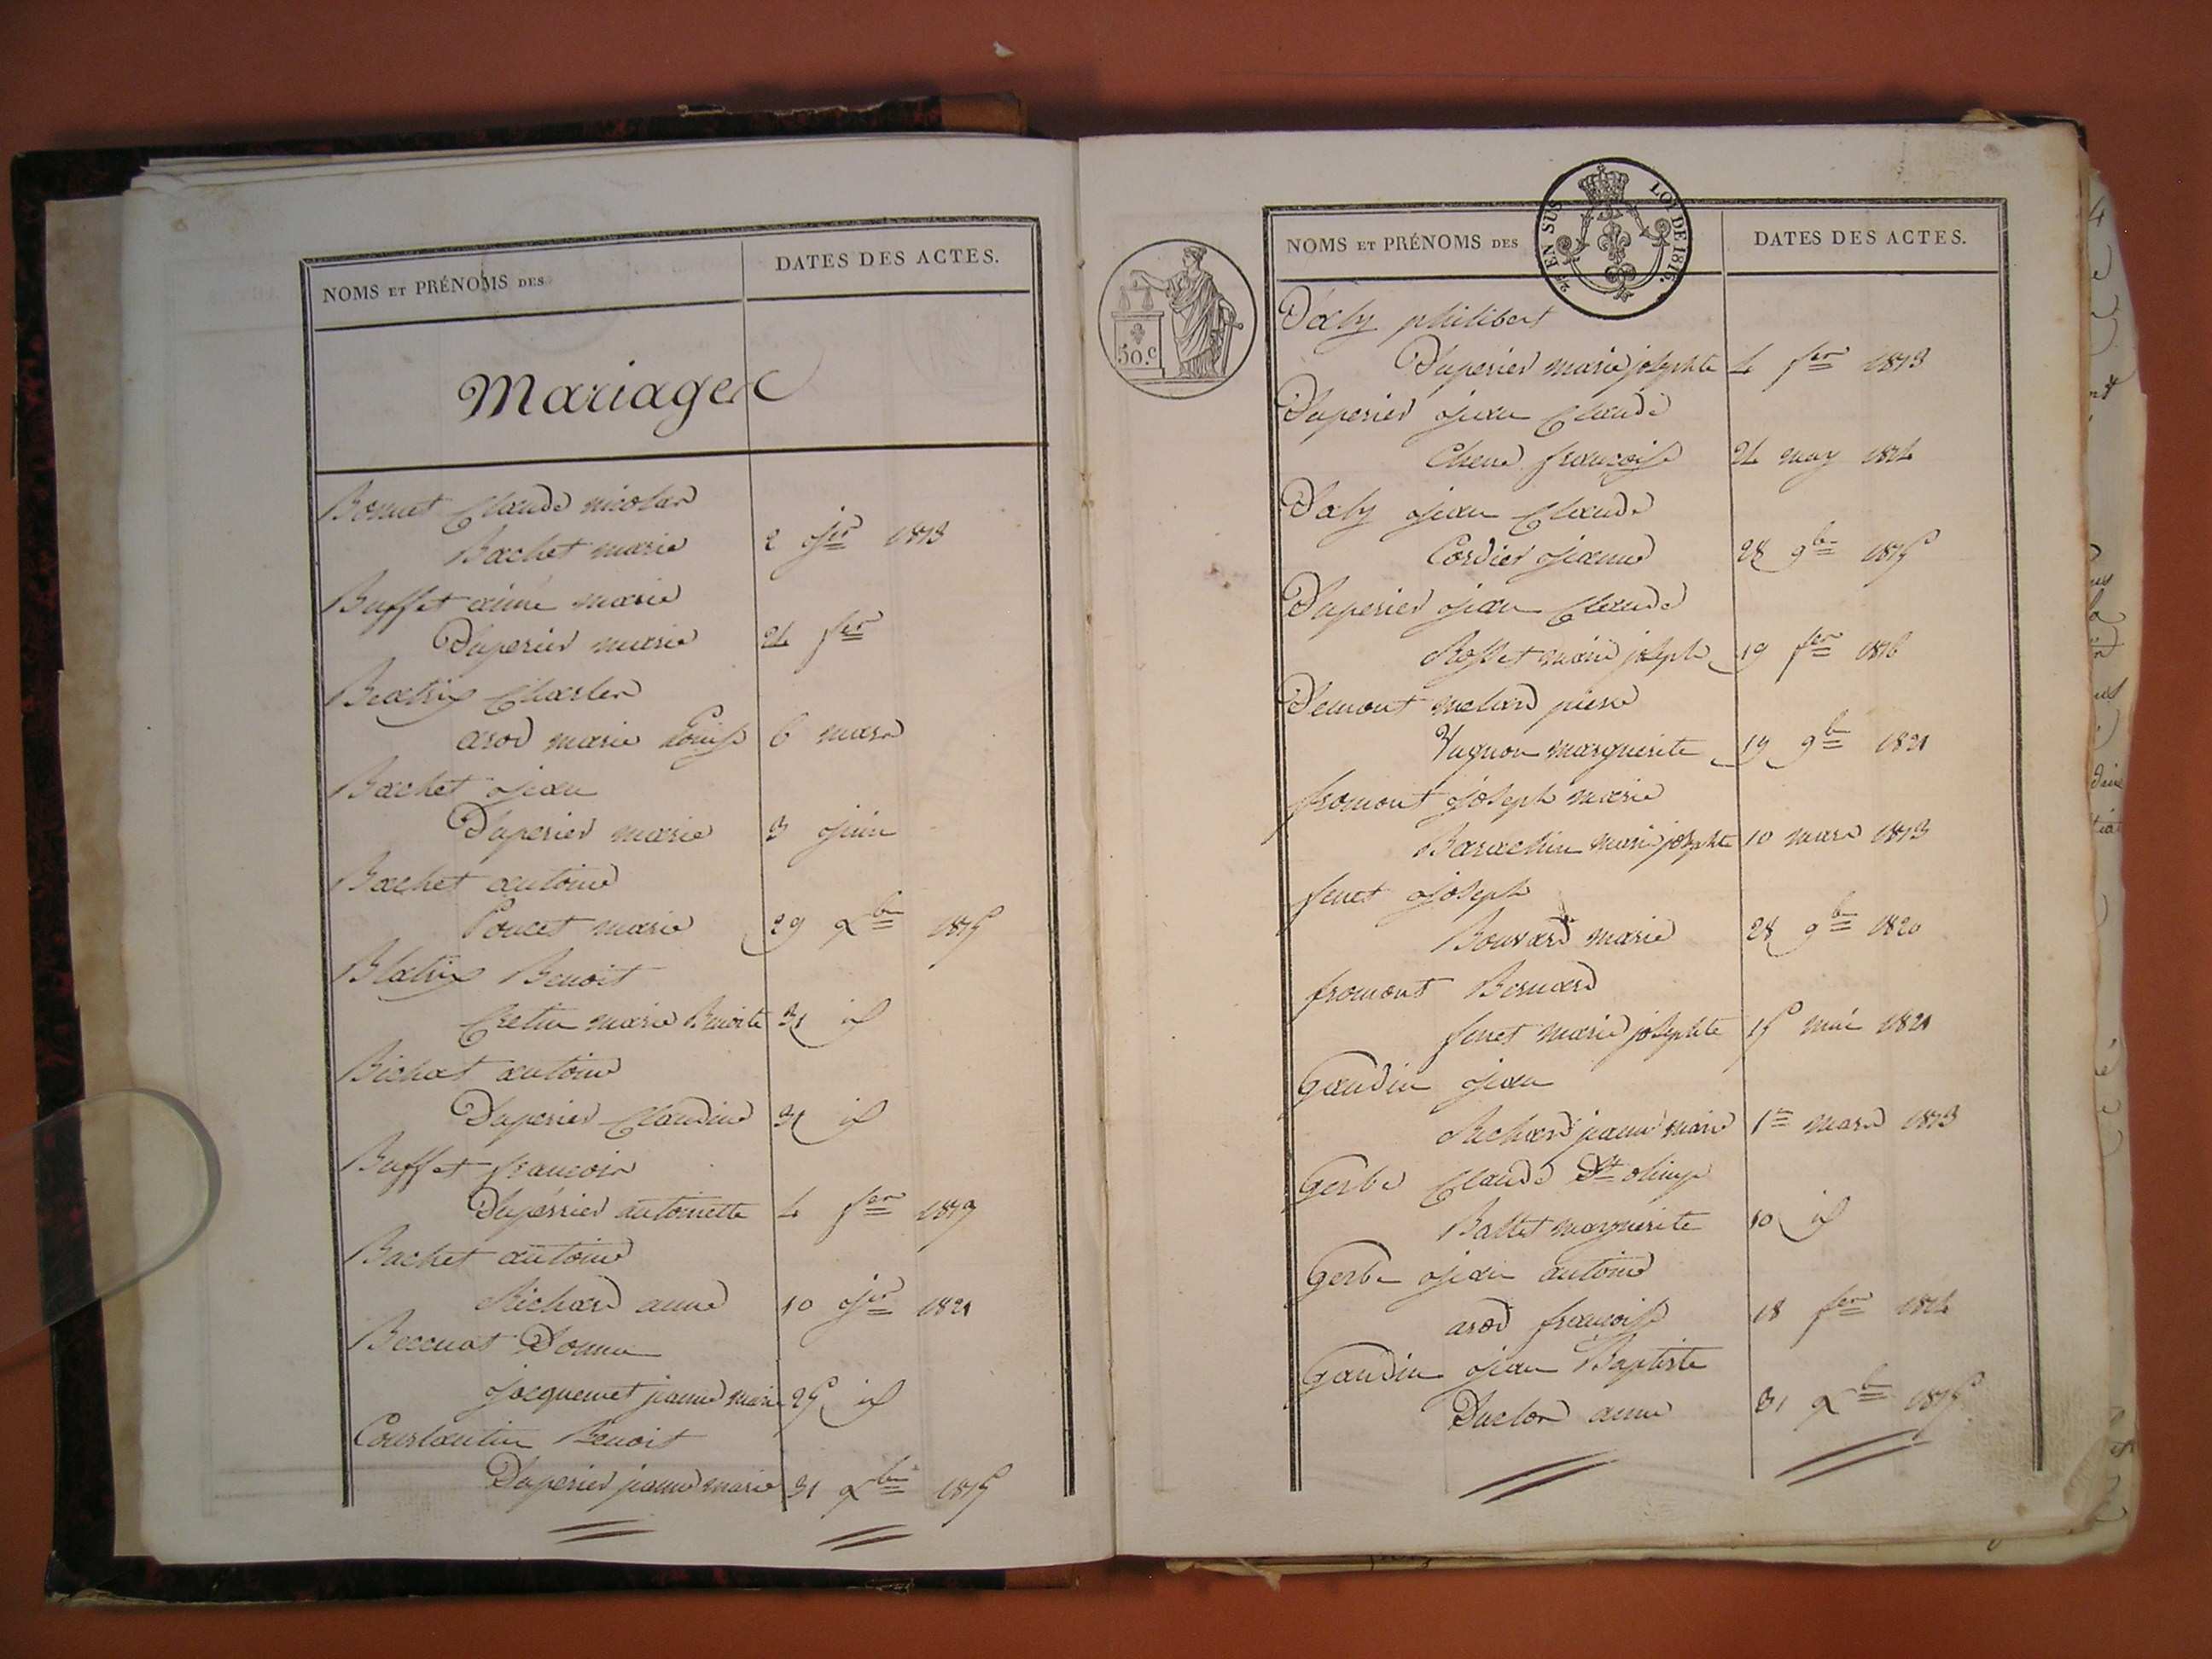 NOMS ET PRÉNOMS DES
DATES DES ACTES.
Mariages
Bonnet Claude nicolas
Bachet marie 2 jer 1813
Buffet aimé marie
Duperier marie 24 fer
Beatrix Charles
arod marie Louise 6 mars
Bachet jean
Duperier marie 3 juin
Bachet antoine
Poncet marie 29 xbre 1815
Blatrix Benoit
Cretin marie Benoite 31 id
Bichat antoine
Duperier Claudine 31 id
Buffet francois
Dupérrier antoinette 4 fer 1819
Bachet antoine
Richard anne 10 jer 1821
Beccuat
Jacquemet jeanne marie 25 id
Courlantin Benoit
Duperier jeanne marie 31 xbre 1815
NOMS ET PRÉNOMS DES
DATES DES ACTES.
EN SUS
LOI DE 1816.
50.c
Daly philibert
Duperier marie josephte 4 fer 1813
Duperier jean Claude
Chene françoise 24 may 1814
Daly jean Claude
Cordier jeanne 28 9bre 1815
Duperier jean Claude
Rosset marie joseph 19 fer 1816
Demont pierre
Vugnon marguerite 19 9bre 1821
fromont joseph marie
Barachin marie josephte 10 mars 1813
fenet joseph
Bouvard marie 28 9bre 1820
fromont Bernard
fenet marie josephte 15 mai 1821
Gaudin jean
Richard jeanne marie 1er mars 1813
Gerbe Claude St olimpe
Ballet marguerite 10 id
Gerbe jean antoine
arod françoise 18 fer 1814
Gaudin jean Baptiste
Duclos anne 31 xbre 1815